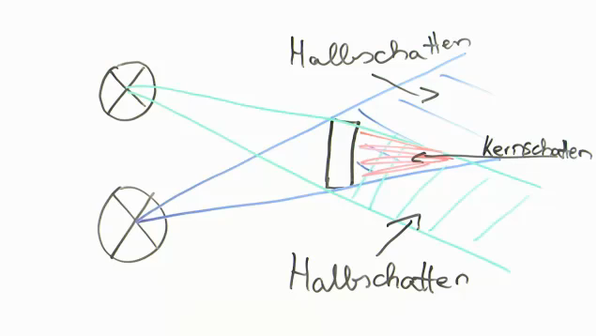 Halbschatten
Kernschatten
Halbschatten